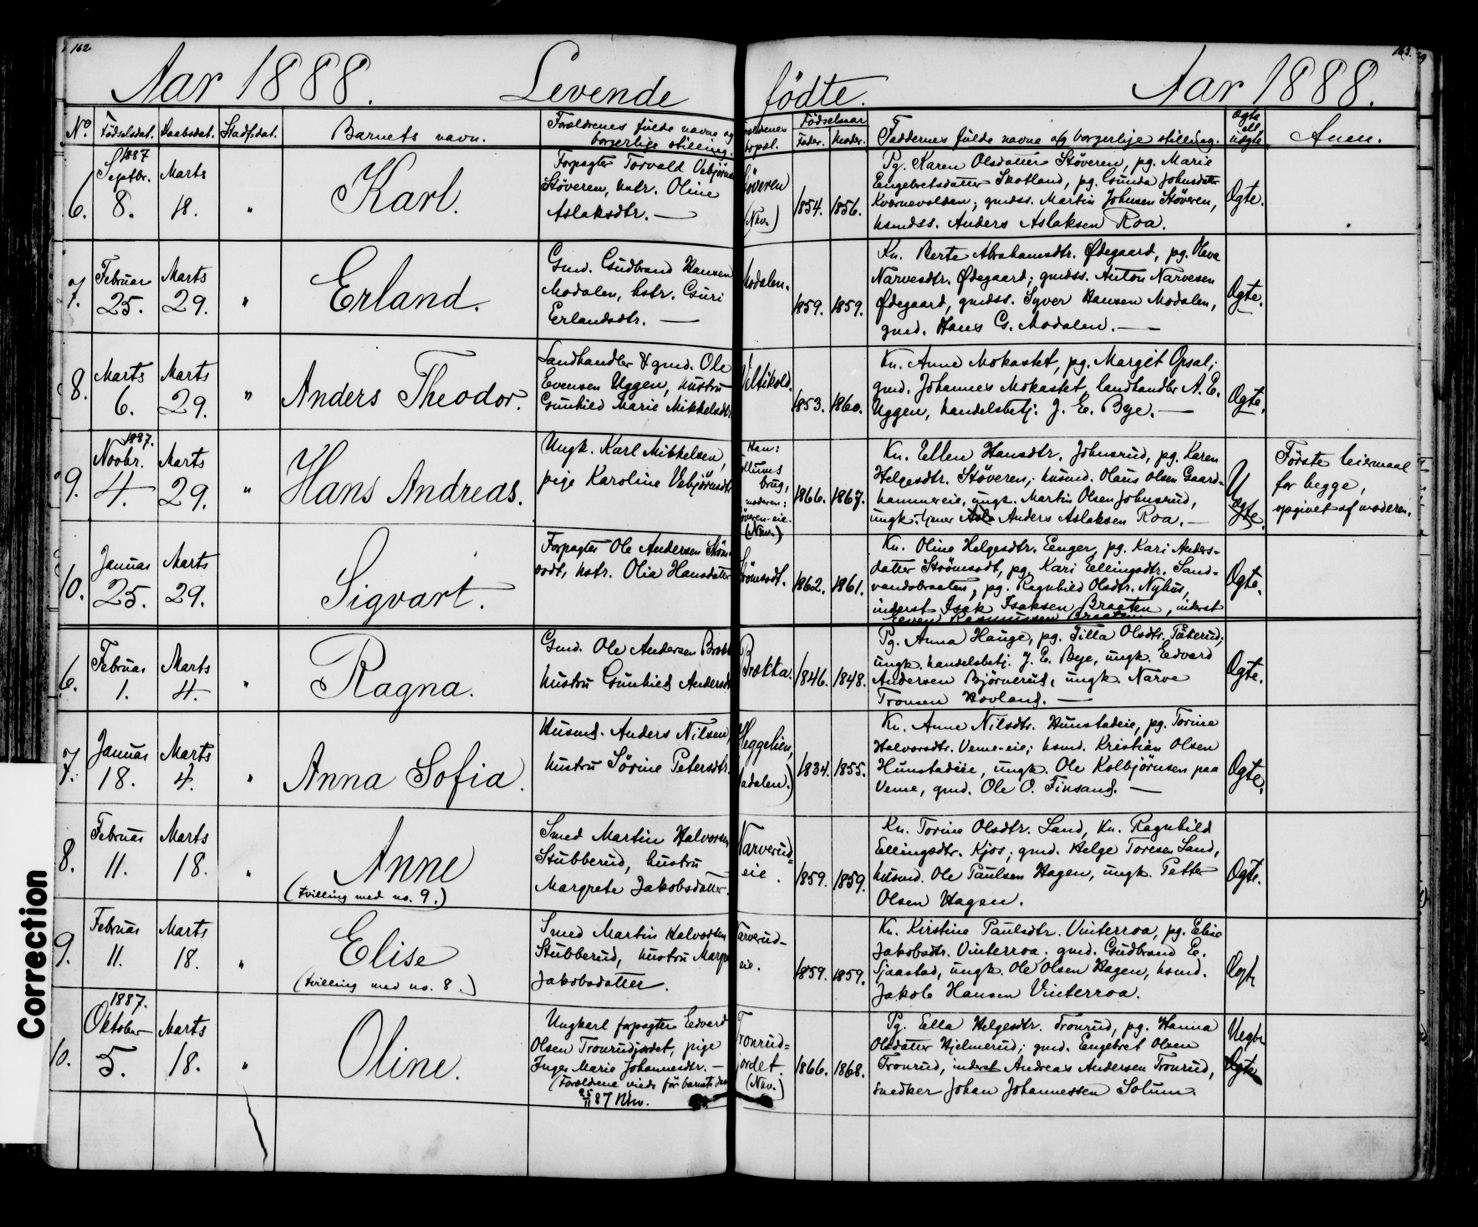 162
Aar 1888. Levende
No. Fødselsdat. Daabsdat. Stadf.dat. Barnets navn. Forældrenes fulde navne og
borgerlige stilling.
1887
6. Septbr. 8. Marts 18. " Karl. Forpagter Torvald Vebjørns
Støveren, hstr. Oline
Aslaksdtr. —
7. Februar 25. Marts 29. " Erland. Gmd. Gudbrand Hansen
Modalen, hstr. Guri
Erlandsdtr. —
8. Marts 6. Marts 29. " Anders Theodor. Landhandler & gmd. Ole
Evensen Uggen, hustru
Gunhild Marie Mikkelsdtr
1887.
9. Novbr. 4. Marts 29. Hans Andreas. Ungk. Karl Mikkelsen,
pige Karoline Vebjørnsdtr
10. Januar 25. Marts 29. Sigvart. Forpagter Ole Andersen Strøm-
sodt, hstr. Olia Hansdatter
6. Februar 1. Marts 4. " Ragna. Gmd. Ole Andersen Brækk
hustru Gunhild Andersd
7. Januar 18. Marts 4. " Anna Sofia. Husmd. Anders Nilsen,
hustru Sørine Petersdtr.
8. Februar 11. Marts 18. " Anne
(tvilling med no. 9.) Smed Martin Halvorsen
Stubberud, hustru
Margrete Jakobsdatter.
9. Februar 11. Marts 18. " Elise
(tvilling med no. 8.) Smed Martin Halvorsen
Stubberud, hustru Margre
Jakobsdatter.
1887.
10. Oktober 5. Marts 18. " Oline. Ungkarl forpagter Edvard
Olsen Tronrudjordet, pige
Inger Marie Johannesdtr. —
(Forældrene viede før barnets
87 Nov.
163.
fødte. Aar 1888.
Fødselsaar
Fader. Moder. Faddernes fulde navne og borgerlige stilling. Ægte
ell.
uægte Anm.
øveren
(Nov.) 1854. 1856. Pg. Karen Olsdatter Støveren, pg. Marie
Engebretsdatter Skotland, pg. Gunda Johnsdatter
Kværnevolden; gmdss. Martin Johnsen Støveren,
husmdss. Anders Aslaksen Roa. Ægte.
Modalen. 1859. 1859. Kn. Berte Abrahamsdtr. Ødegaard, pg. Olava
Narvesdtr. Ødegaard; gmdss. Anton Narvesen
Ødegaard, gmdss. Syver Hansen Modalen,
gmd. Hans G. Modalen. — Ægte.
Veltikold. 1853. 1860. Kn. Anne Mokastet, pg. Margit Opsal;
gmd. Johannes Mokastet, landhandler A. E.
Uggen, handelsbetj. J. E. Bye. — Ægte.
Han:
brug,
moderen:
øveren-eie.
(Nov.) 1866. 1867. Kn. Ellen Hansdtr. Johnsrud, pg. Karen
Helgesdtr. Støveren; husmd. Olaus Olsen Gaard-
hammereie, ungk. Martin Olsen Johnsrud,
ungk. tjener Anders Aslaksen Roa. — Uægte. Første leiermaal
for begge,
opgivet af moderen.
Strømsodt. 1862. 1861. Kn. Oline Helgesdtr. Eenger, pg. Kari Anders-
datter Strømsodt, pg. Kari Ellingsdtr. Sand-
vandsbraaten, pg. Ragnhild Olsdtr. Nyhus,
inderst Isak Isaksen Braaten, inderst
Even Rasmussen Braaten. Ægte.
Brækka. 1846. 1848. Pg. Anna Hauge, pg. Jilla Olsdtr. Pakerud;
ungk. handelsbetj. J. E. Bye, ungk. Edvard
Andersen Bjørnerud, ungk. Narve
Tronsen Hovland. — Ægte.
Heggelien,
adalen.) 1834. 1855. Kn. Anne Nilsdtr. Hunstadeie, pg. Torine
Halvorsdtr. Veme-eie; husmd. Kristian Olsen
Hunstadeie, ungk. Ole Kolbjørnsen paa
Veme, gmd. Ole O. Finsand. — Ægte.
Tarverud-
eie. 1859. 1859. Kn. Torine Olsdtr. Land, Kn. Ragnhild
Ellingsdtr. Kjos; gmd. Helge Toresen Land,
husmd. Ole Paulsen Hagen, ungk. Petter
Olsen Hagen. Ægte.
arverud-
eie. 1859. 1859. Kn. Kirstine Paulsdtr. Vinterroa, pg. Elise
Jakobsdtr. Vinterroa. gmd. Gudbrand E.
Tjaastad, ungk. Ole Olsen Hagen, husmd.
Jakob Hansen Vinterroa. Ægt
Tronrud-
jordet.
(Nov.) 1866. 1868. Pg. Ella Helgesdtr. Tronrud, pg. Hanna
Olsdatter Hjelmerud; gmd. Engebret Olsen
Tronrud, inderst Andreas Andersen Tronrud,
snedker Johan Johannessen Solum. Uegte
Ægte
Correction